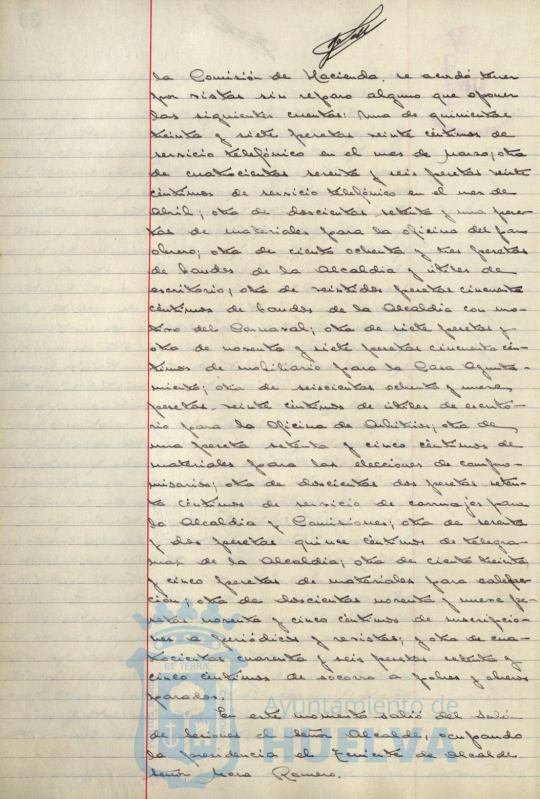 la Comisión de Hacienda, se acordó tener
por vistas sin reparo alguno que oponer
las siguientes cuentas: Una de quinientas
treinta y siete pesetas veinte céntimos de
servicio telefónico en el mes de marzo; otra
de cuatrocientas sesenta y seis pesetas veinte
céntimos de servicio telefónico en el mes de
Abril; otra de doscientas setenta y una pese-
tas de materiales para la oficina del paro
obrero; otra de ciento ochenta y tres pesetas
de bandos de la Alcaldía y útiles de
escritorio; otra de veintidos pesetas cincuenta
céntimos de bandos de la Alcaldía con mo-
tivo del Carnaval; otra de siete pesetas y
otra de noventa y siete pesetas cincuenta cén-
timos de mobiliario para la Casa Ayunta-
miento; otra de seiscientas ochenta y nueve
pesetas veinte céntimos de útiles de escrito-
rio para la Oficina de Arbitrios; otra de
una peseta setenta y cinco céntimos de
materiales para las elecciones de compro-
misarios; otra de doscientas dos pesetas seten-
ta céntimos de servicio de carruajes para
la Alcaldía y Comisiones; otra de sesenta
y dos pesetas quince céntimos de telegra-
mas de la Alcaldía; otra de ciento treinta
y cinco pesetas de materiales para calefac-
ción; otra de doscientas noventa y nueve pe-
setas noventa y cinco céntimos de suscripcio-
nes a periódicos y revistas; y otra de cua-
trocientas cuarenta y seis pesetas setenta y
cinco céntimos de socorro a pobres y obreros
parados.
En este momento salió del salón
de sesiones el señor Alcalde, ocupando
la presidencia el Teniente de Alcalde
señor Mora Romero.
ET TERRAE
Ayuntamiento de
HUELVA